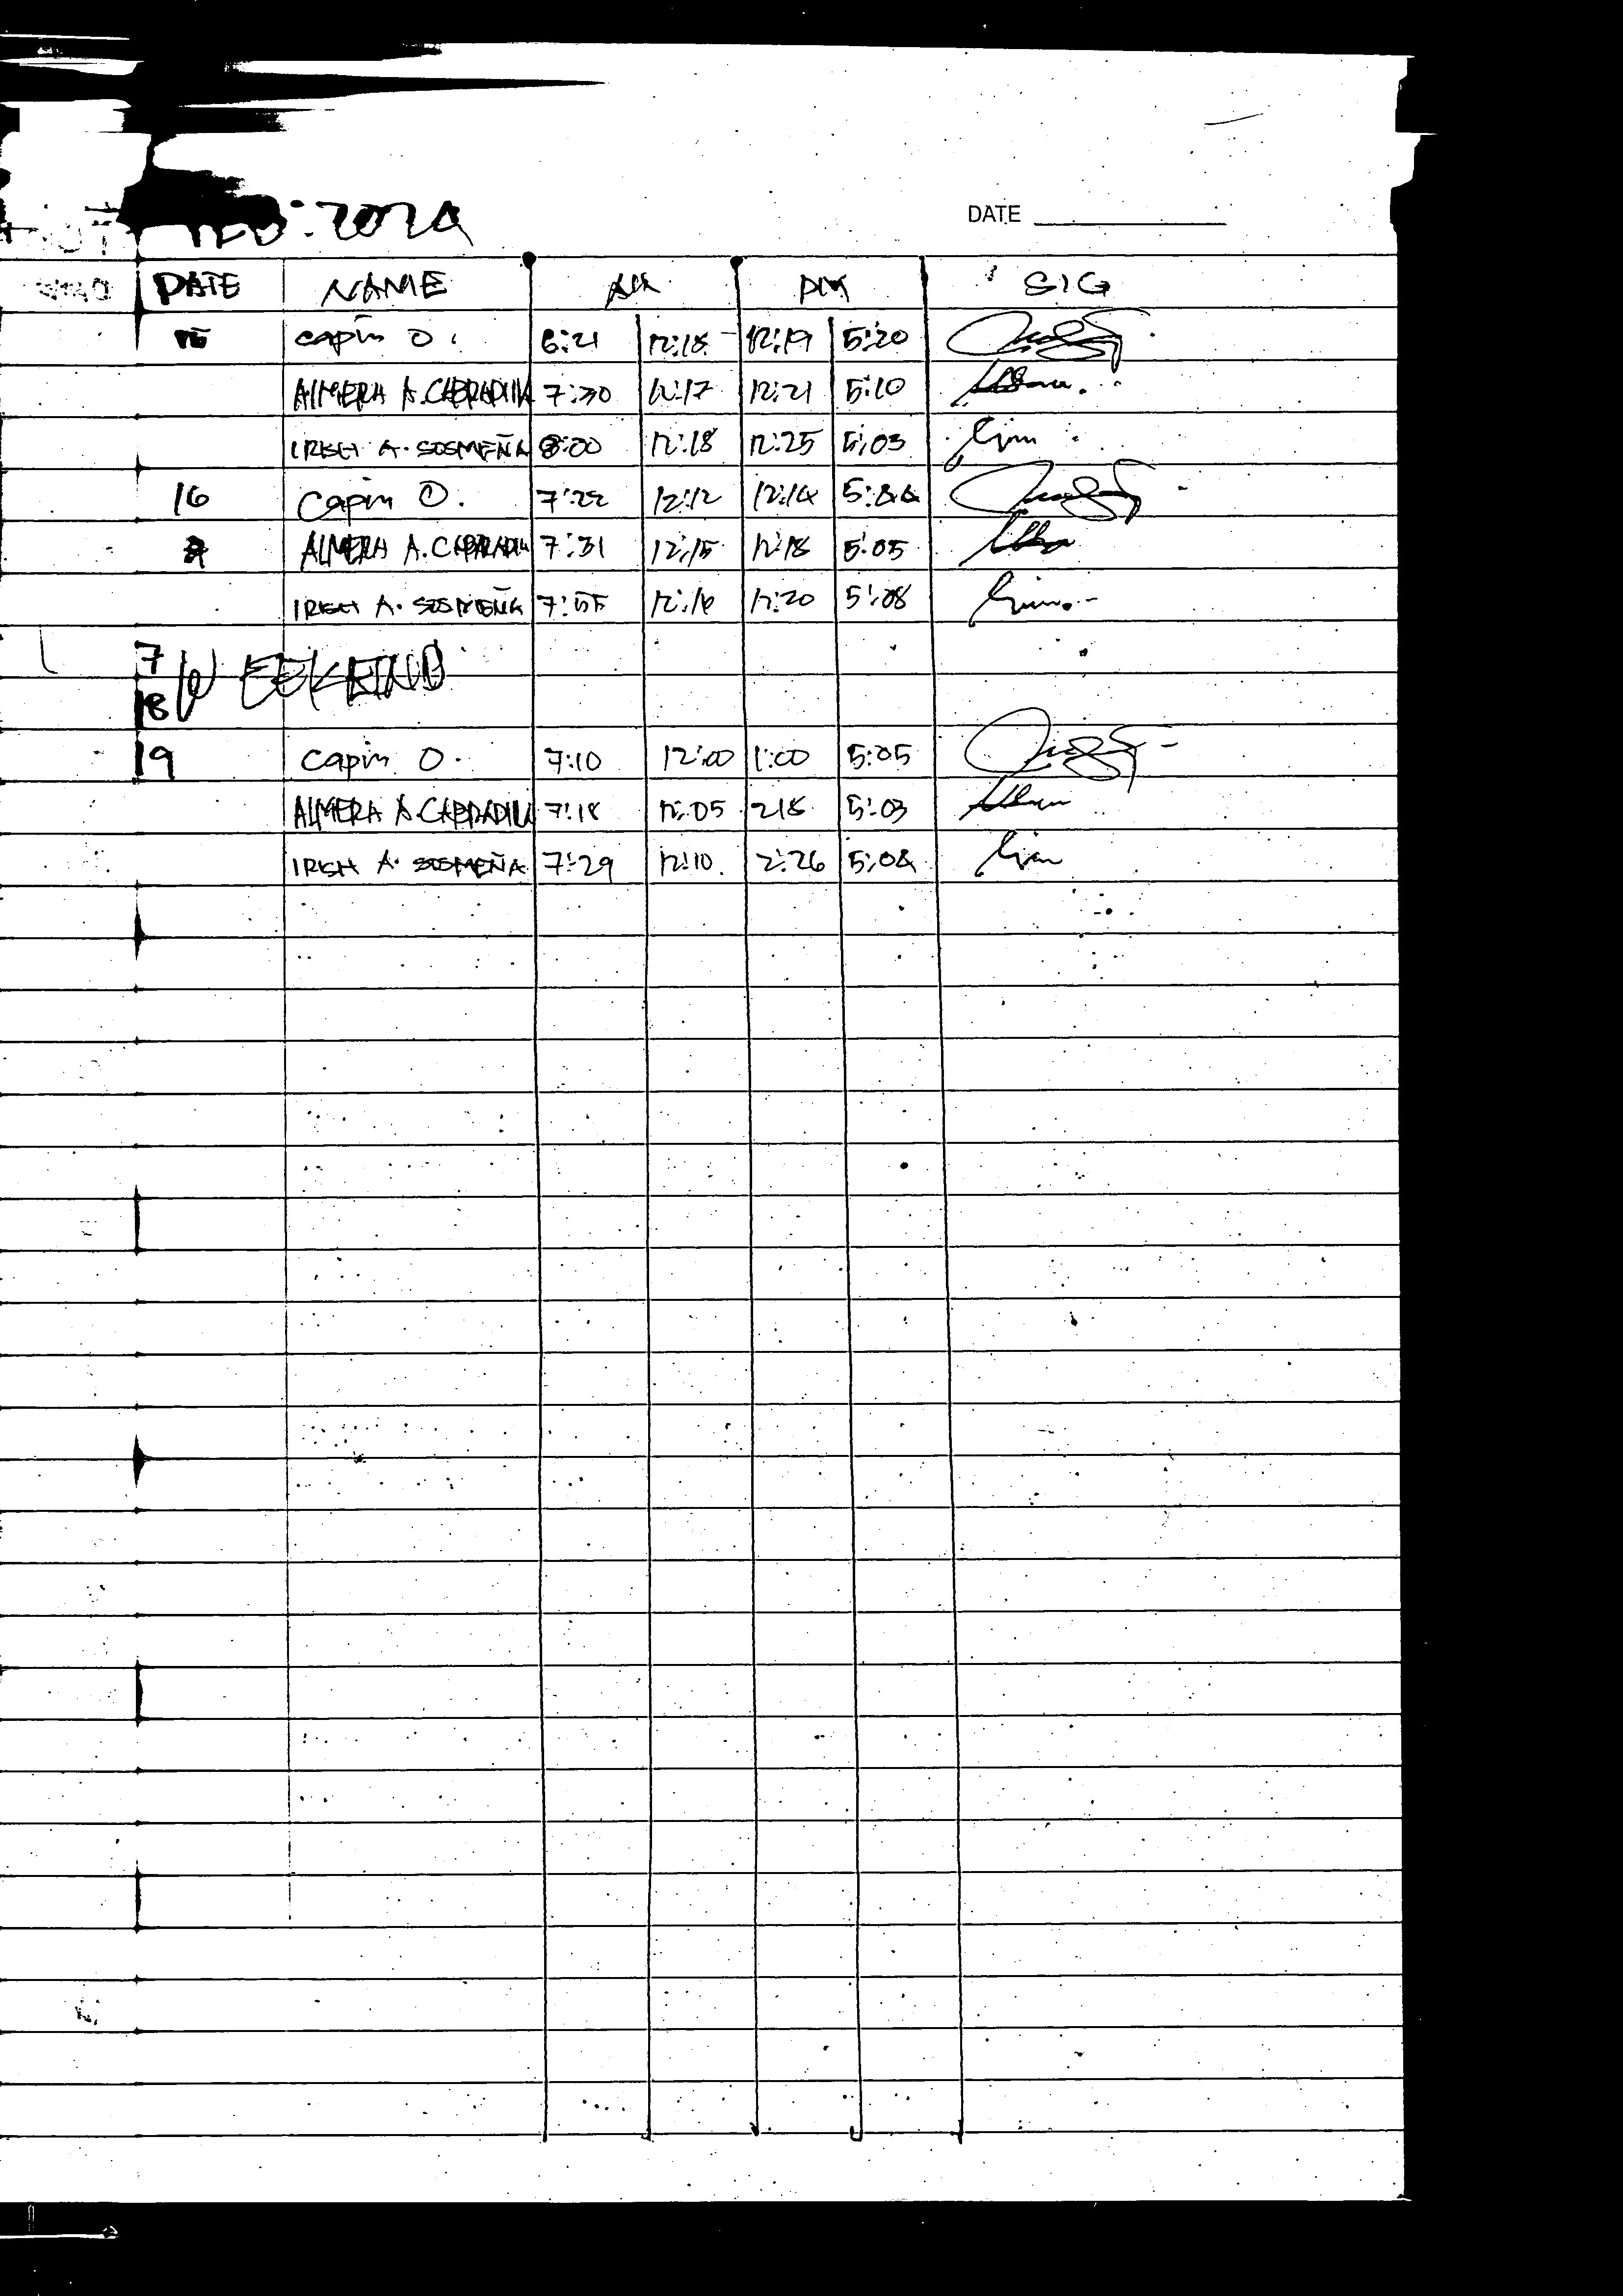 FEB. 2024
DATE
DATE NAME AM PM SIG
15 capin O. 6:21 12:18 12:19 5:20
ALMERA A. 7:30 12:17 12:21 5:10
IRISH A. SOSMEÑA 8:00 12:18 12:25 5:03
16 Capin O. 7:22 12:12 12:14 5:44
ALMERA A. 7:31 12:15 12:18 5:05
IRISH A. SOSMEÑA 7:55 12:16 12:20 5:08
7 WEEKEND
18
19 capin O. 7:10 12:00 1:00 5:05
ALMERA A. 7:18 12:05 2:18 5:03
IRISH A. SOSMEÑA 7:29 12:10 2:26 5:04